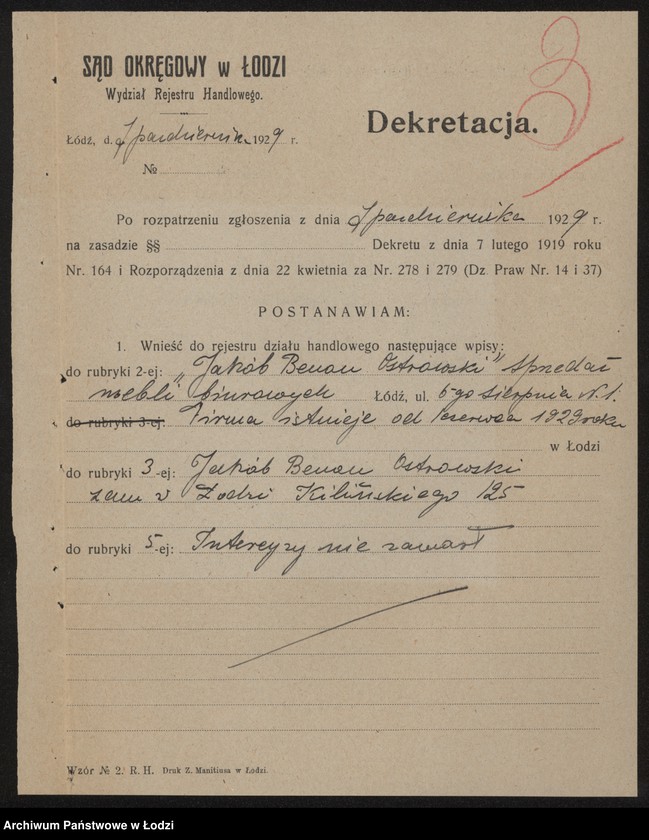 SĄD OKRĘGOWY w ŁODZI
Wydział Rejestru Handlowego.
Łódź, d. 9 października 1929 r.
№
Dekretacja.
Po rozpatrzeniu zgłoszenia z dnia 9 października 1929 r.
na zasadzie §§ Dekretu z dnia 7 lutego 1919 roku
Nr. 164 i Rozporządzenia z dnia 22 kwietnia za Nr. 278 i 279 (Dz. Praw Nr. 14 i 37)
POSTANAWIAM:
1. Wnieść do rejestru działu handlowego następujące wpisy:
do rubryki 2-ej: „Jakób Benon Ostrowski" sprzedaż
mebli biurowych Łódź, ul. 6-go sierpnia N. 1.
do rubryki 3-ej: Firma istnieje od czerwca 1929 roku
w Łodzi
do rubryki 3-ej: Jakób Benon Ostrowski
zam w Łodzi Kilińskiego 125
do rubryki 5-ej: Intercyzy nie zawarł
Wzór № 2. R. H. Druk Z. Manitiusa w Łodzi.
Archiwum Państwowe w Łodzi